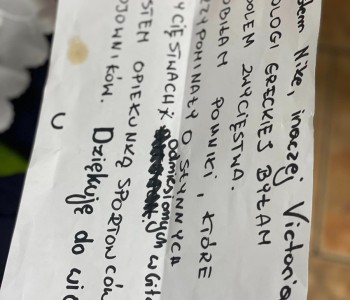 Nike, inaczej Victoria
OLOGI GRECKIEJ BYŁAM
BOLEM ZWYCIĘSTWA.
POMNIKI, KTÓRE
PRZYPOMINAŁY O SŁYNNYCH
YCIĘSTWACH odniesionych w
STEM OPIEKUNKĄ SPORTOWCÓW
OWNIKÓW. Dziękuję do wid